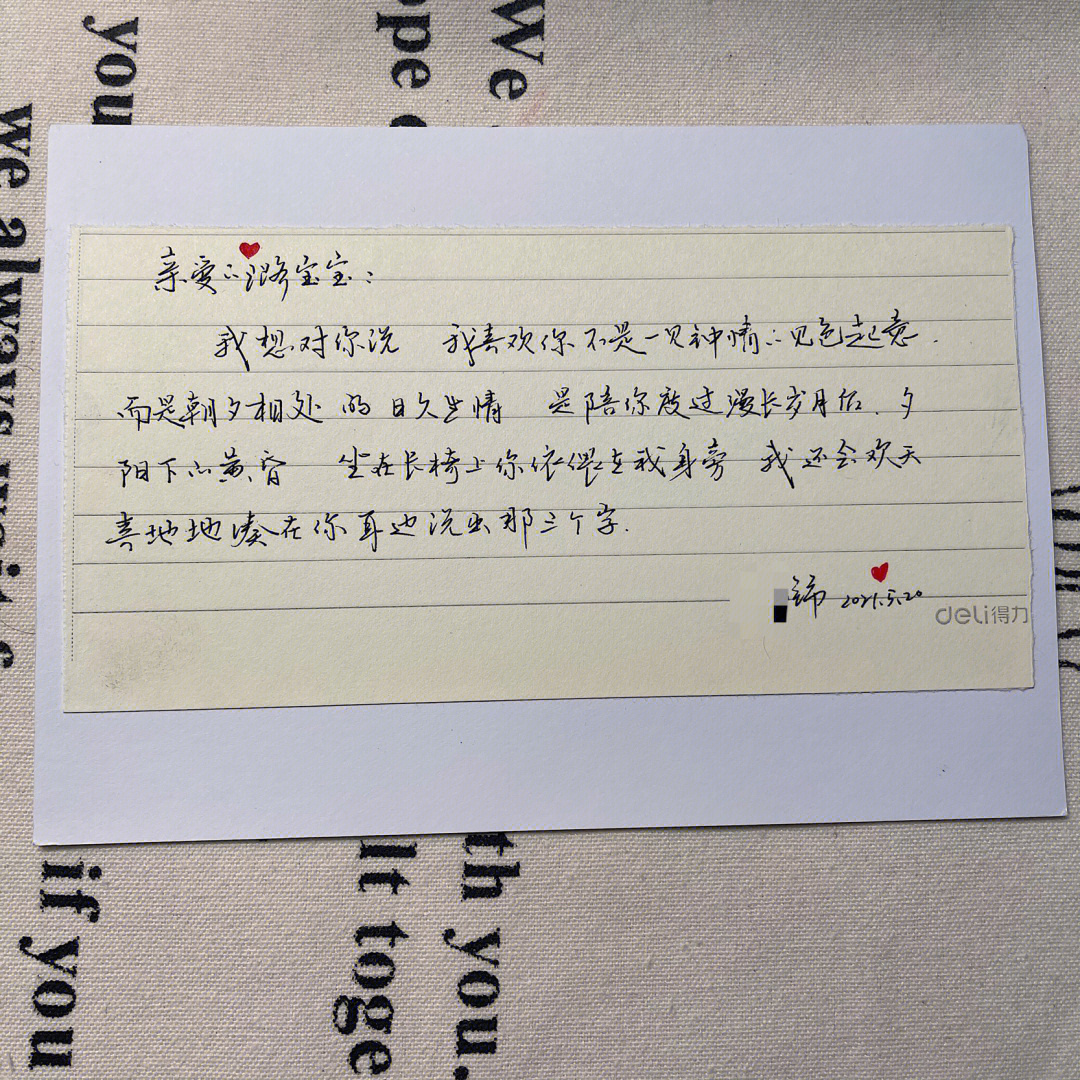 亲爱的潞宝宝：
我想对你说 我喜欢你不是一见钟情的见色起意.
而是朝夕相处 的日久生情 是陪你度过漫长岁月后、夕
阳下的黄昏 坐在长椅上你依偎在我身旁 我还会欢天
喜地地凑在你耳边说出那三个字.
锦 2021.5.20
deli得力
We
ope
you
we always
if you
lt toge
th you.